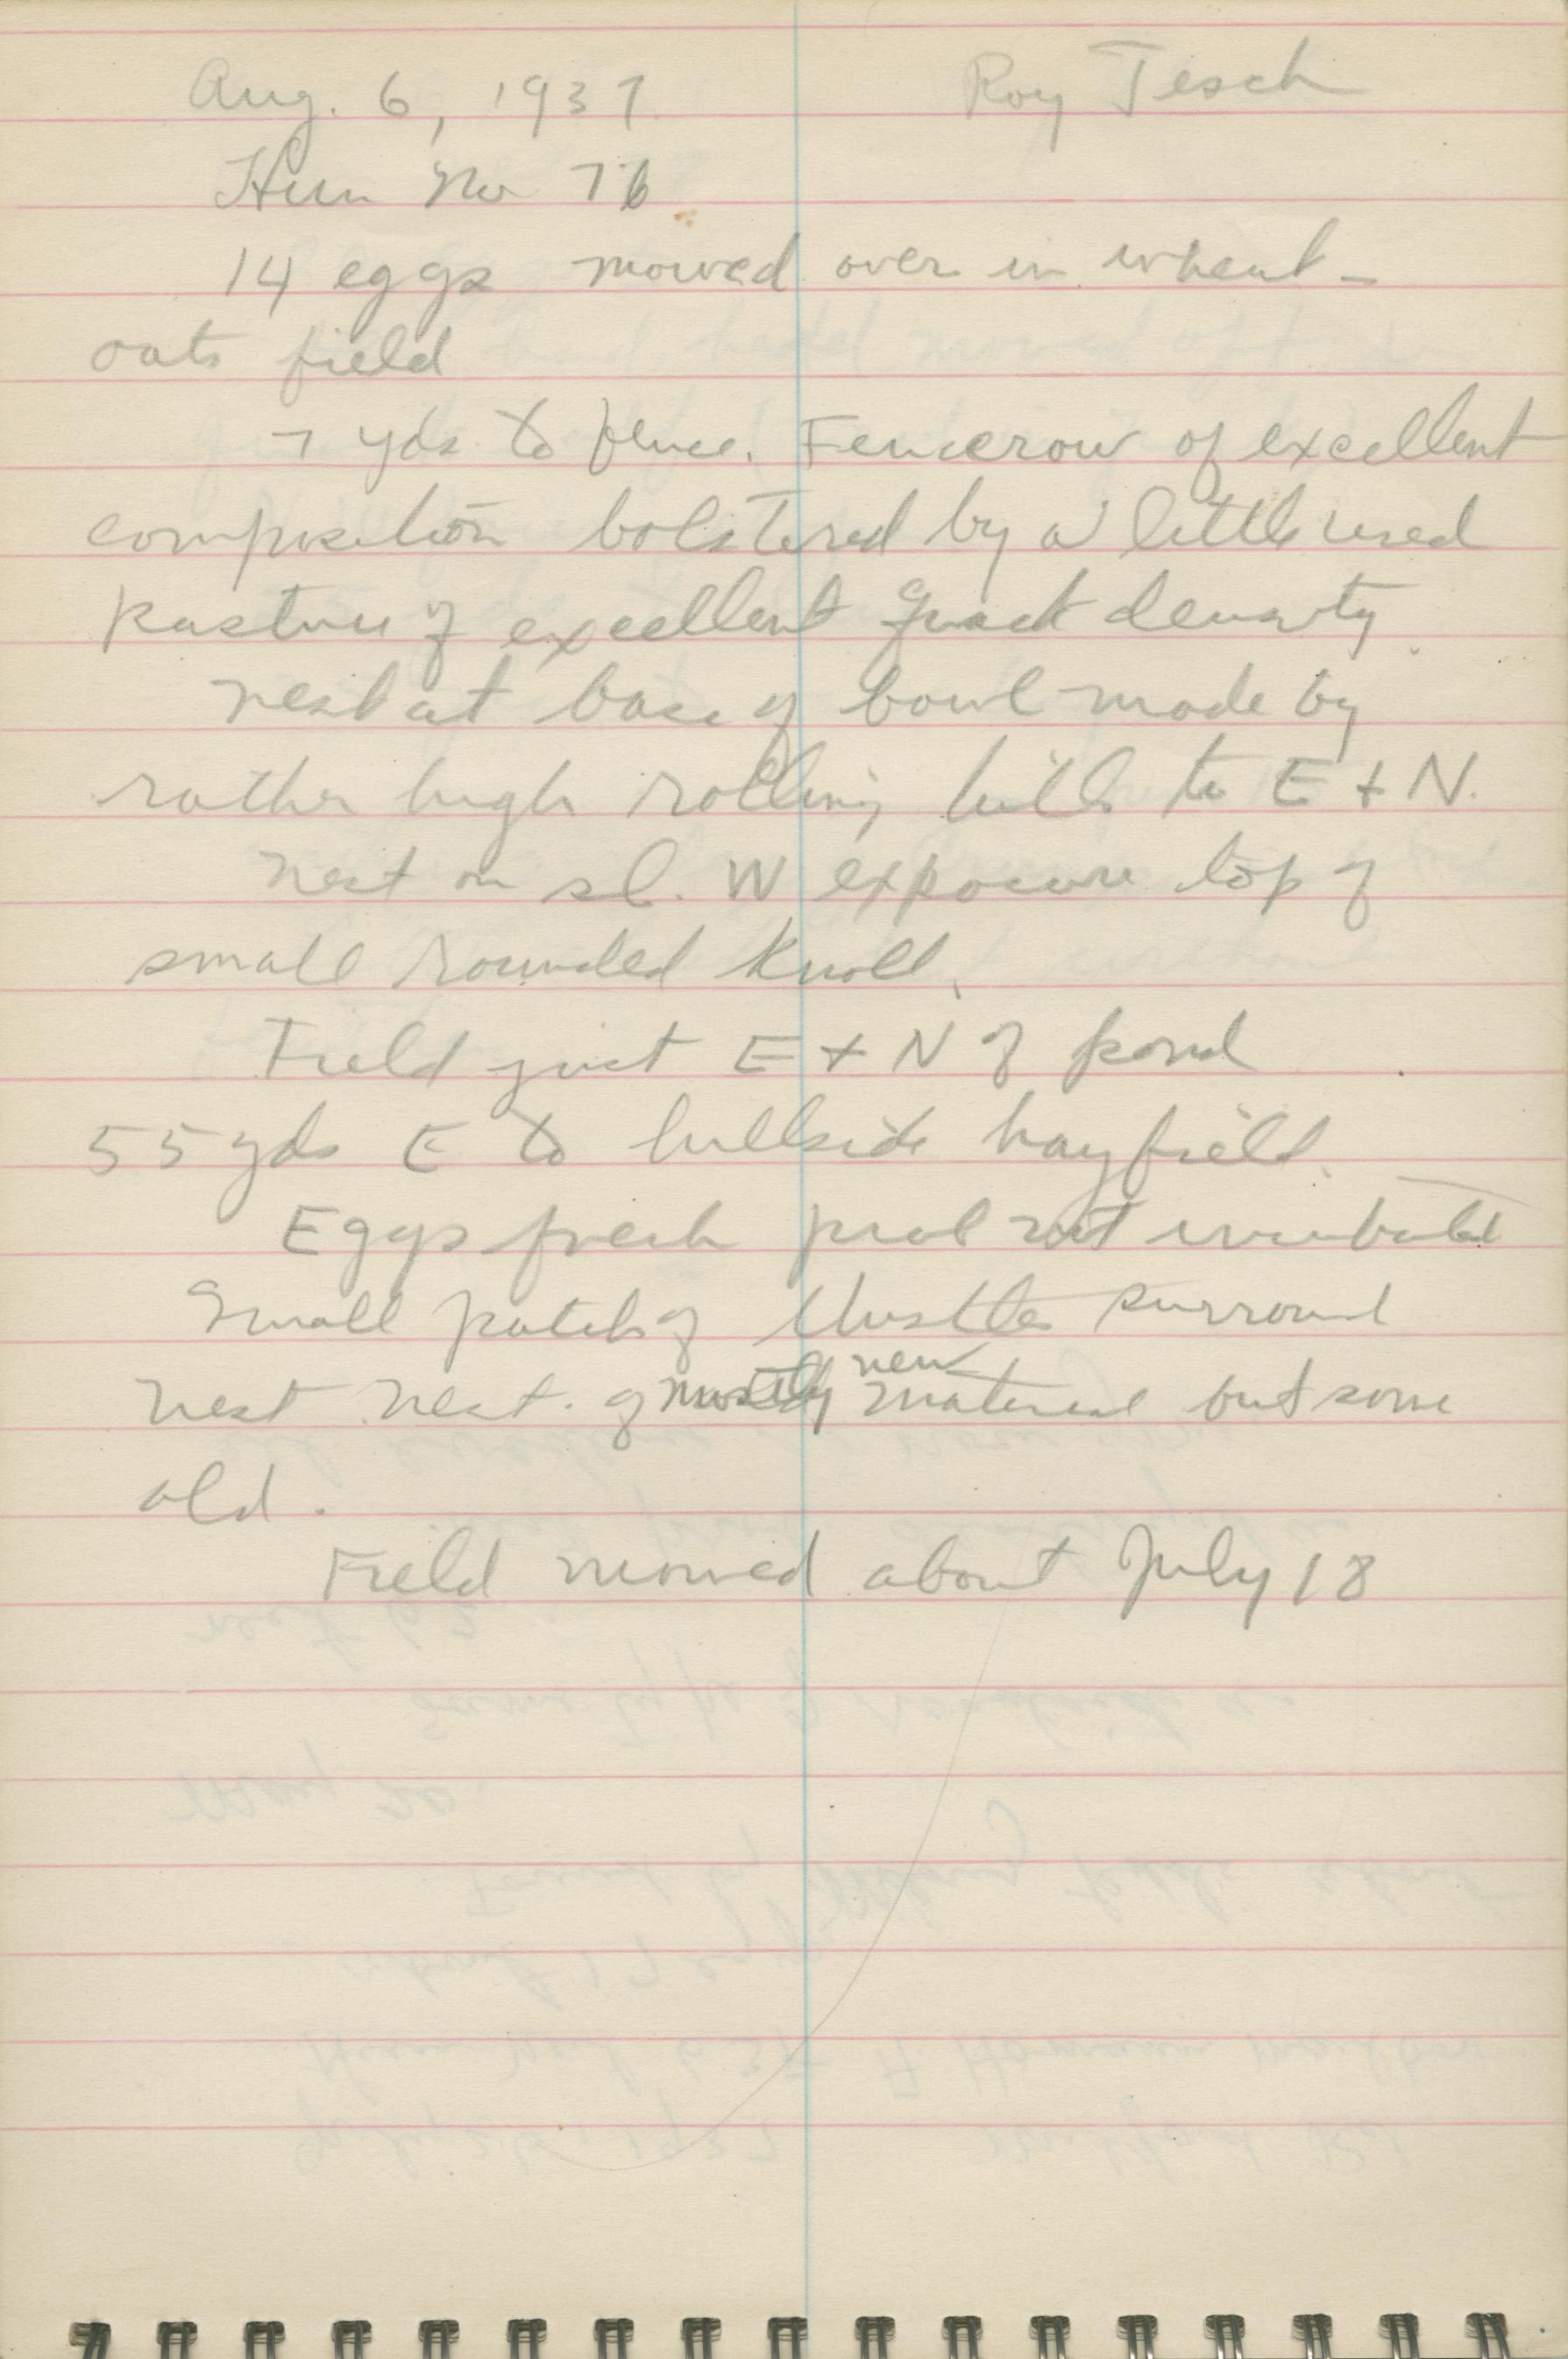 Aug. 6, 1937 Roy Tesch
Hun No 76
14 eggs mowed over in wheat-
oats field
7 yds to fence. Fencerow of excellent
composition bolstered by a little used
pasture of excellent quack density
nest at base of bowl made by
rather high rolling hills to E + N.
Nest on sl. W exposure top of
small rounded knoll.
Field just E + N of pond
55 yds E to hillside hayfield.
Eggs fresh prob not incubated
Small patch of thistles surround
nest nest. of mostly new material but some
old.
Field mowed about July 18